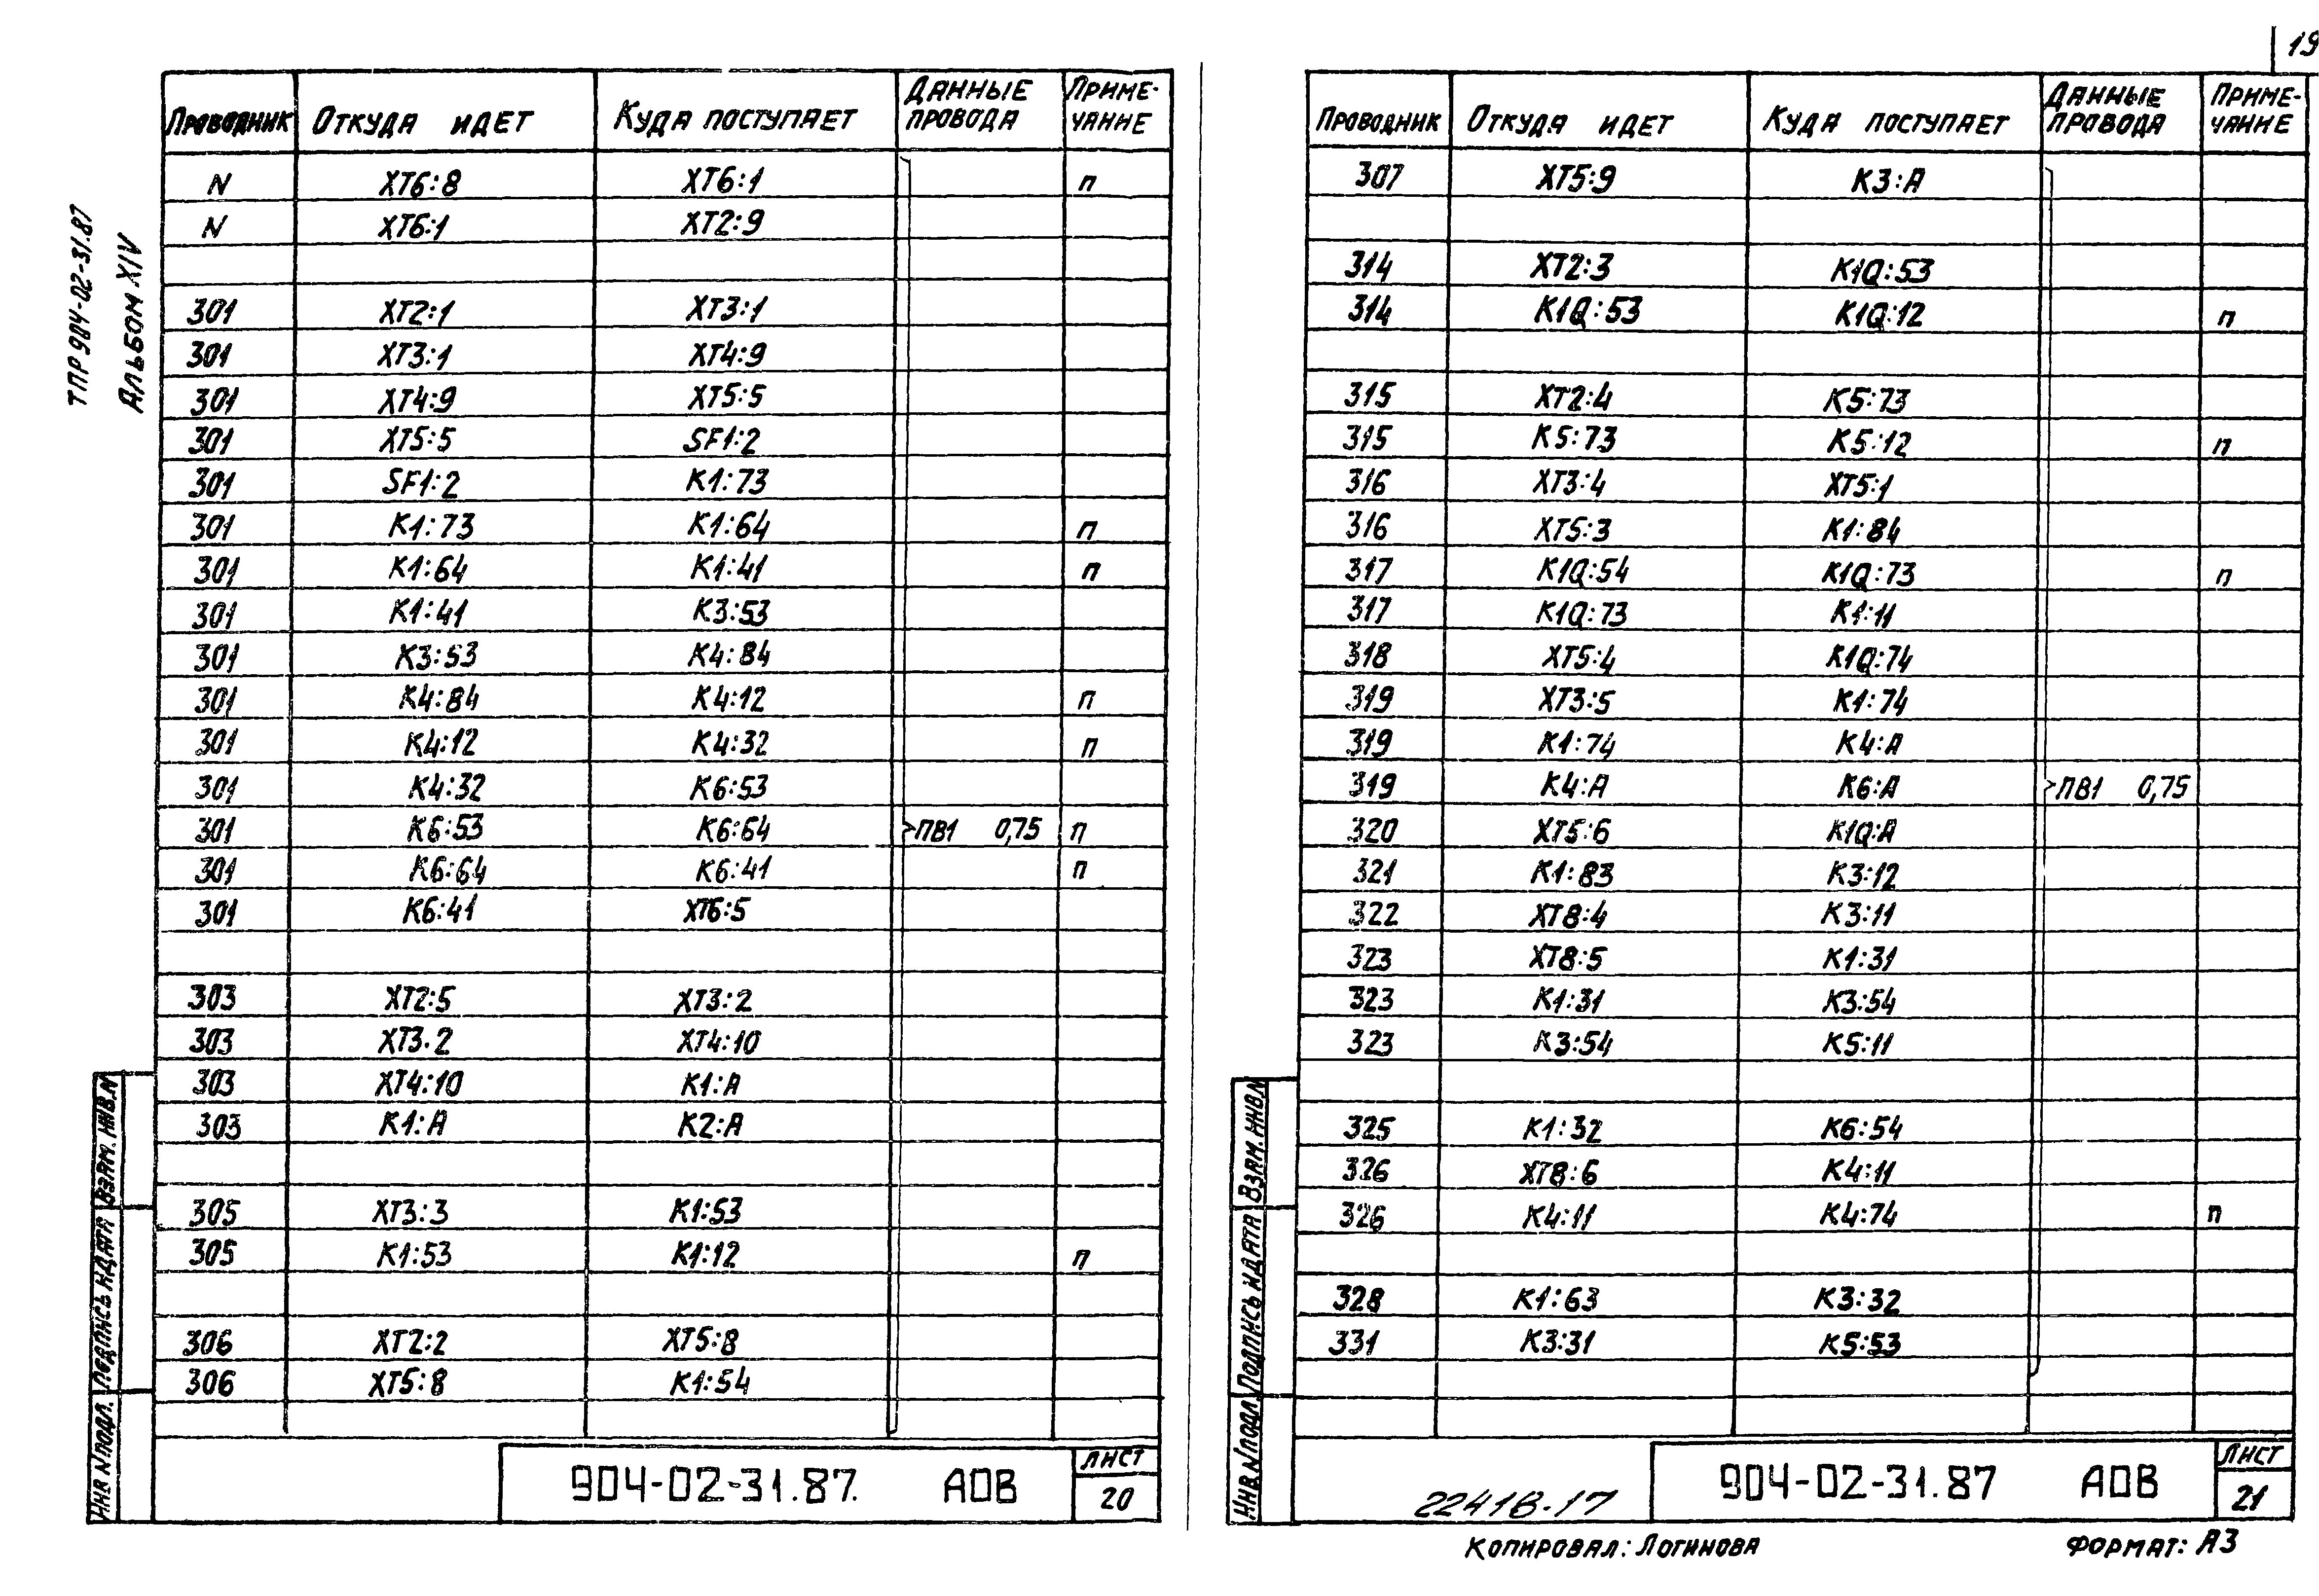 19
ТПР 904-02-31.87
Альбом XIV
Проводник Откуда идет Куда поступает Данные провода Примечание
N ХТ6:8 ХТ6:1 п
N ХТ6:1 ХТ2:9
301 ХТ2:1 ХТ3:1
301 ХТ3:1 ХТ4:9
301 ХТ4:9 ХТ5:5
301 ХТ5:5 SF1:2
301 SF1:2 К1:73
301 К1:73 К1:64 п
301 К1:64 К1:41 п
301 К1:41 К3:53
301 К3:53 К4:84
301 К4:84 К4:12 п
301 К4:12 К4:32 п
301 К4:32 К6:53
301 К6:53 К6:64 ПВ1 0,75 п
301 К6:64 К6:41 п
301 К6:41 ХТ6:5
303 ХТ2:5 ХТ3:2
303 ХТ3.2 ХТ4:10
303 ХТ4:10 К1:А
303 К1:А К2:А
305 ХТ3:3 К1:53
305 К1:53 К1:12 п
306 ХТ2:2 ХТ5:8
306 ХТ5:8 К1:54
Инв N подл. Подпись и дата Взам. инв. N
904-02-31.87. АОВ
Лист
20
Проводник Откуда идет Куда поступает Данные провода Примечание
307 ХТ5:9 К3:А
314 ХТ2:3 К1Q:53
314 К1Q:53 К1Q:12 п
315 ХТ2:4 К5:73
315 К5:73 К5:12 п
316 ХТ3:4 ХТ5:1
316 ХТ5:3 К1:84
317 К1Q:54 К1Q:73 п
317 К1Q:73 К1:11
318 ХТ5:4 К1Q:74
319 ХТ3:5 К1:74
319 К1:74 К4:А
319 К4:А К6:А ПВ1 0,75
320 ХТ5:6 К1Q:А
321 К1:83 К3:12
322 ХТ8:4 К3:11
323 ХТ8:5 К1:31
323 К1:31 К3:54
323 К3:54 К5:11
325 К1:32 К6:54
326 ХТ8:6 К4:11
326 К4:11 К4:74 п
328 К1:63 К3:32
331 К3:31 К5:53
Инв N подл. Подпись и дата Взам. инв. N
22418-17
904-02-31.87 АОВ
Лист
21
Копировал: Логинова Формат: А3